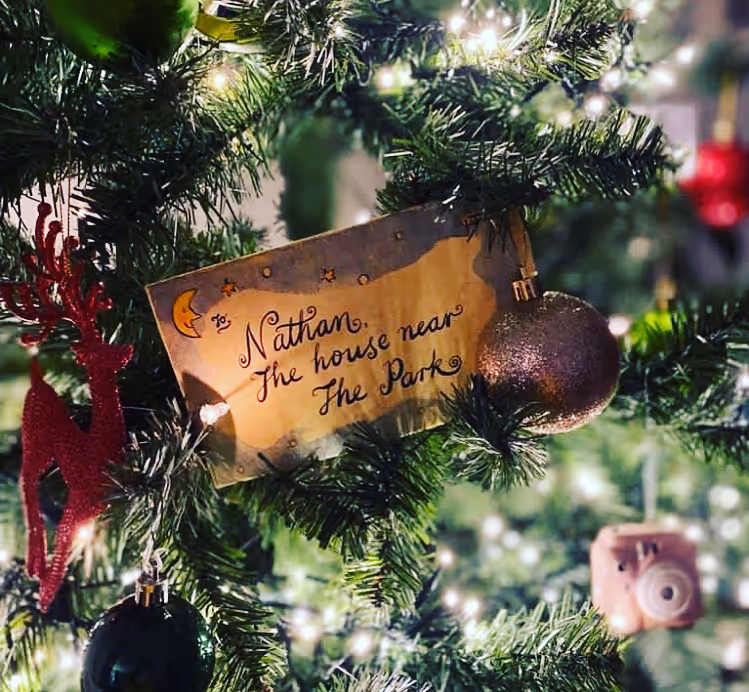 To:
Nathan,
The house near
The Park